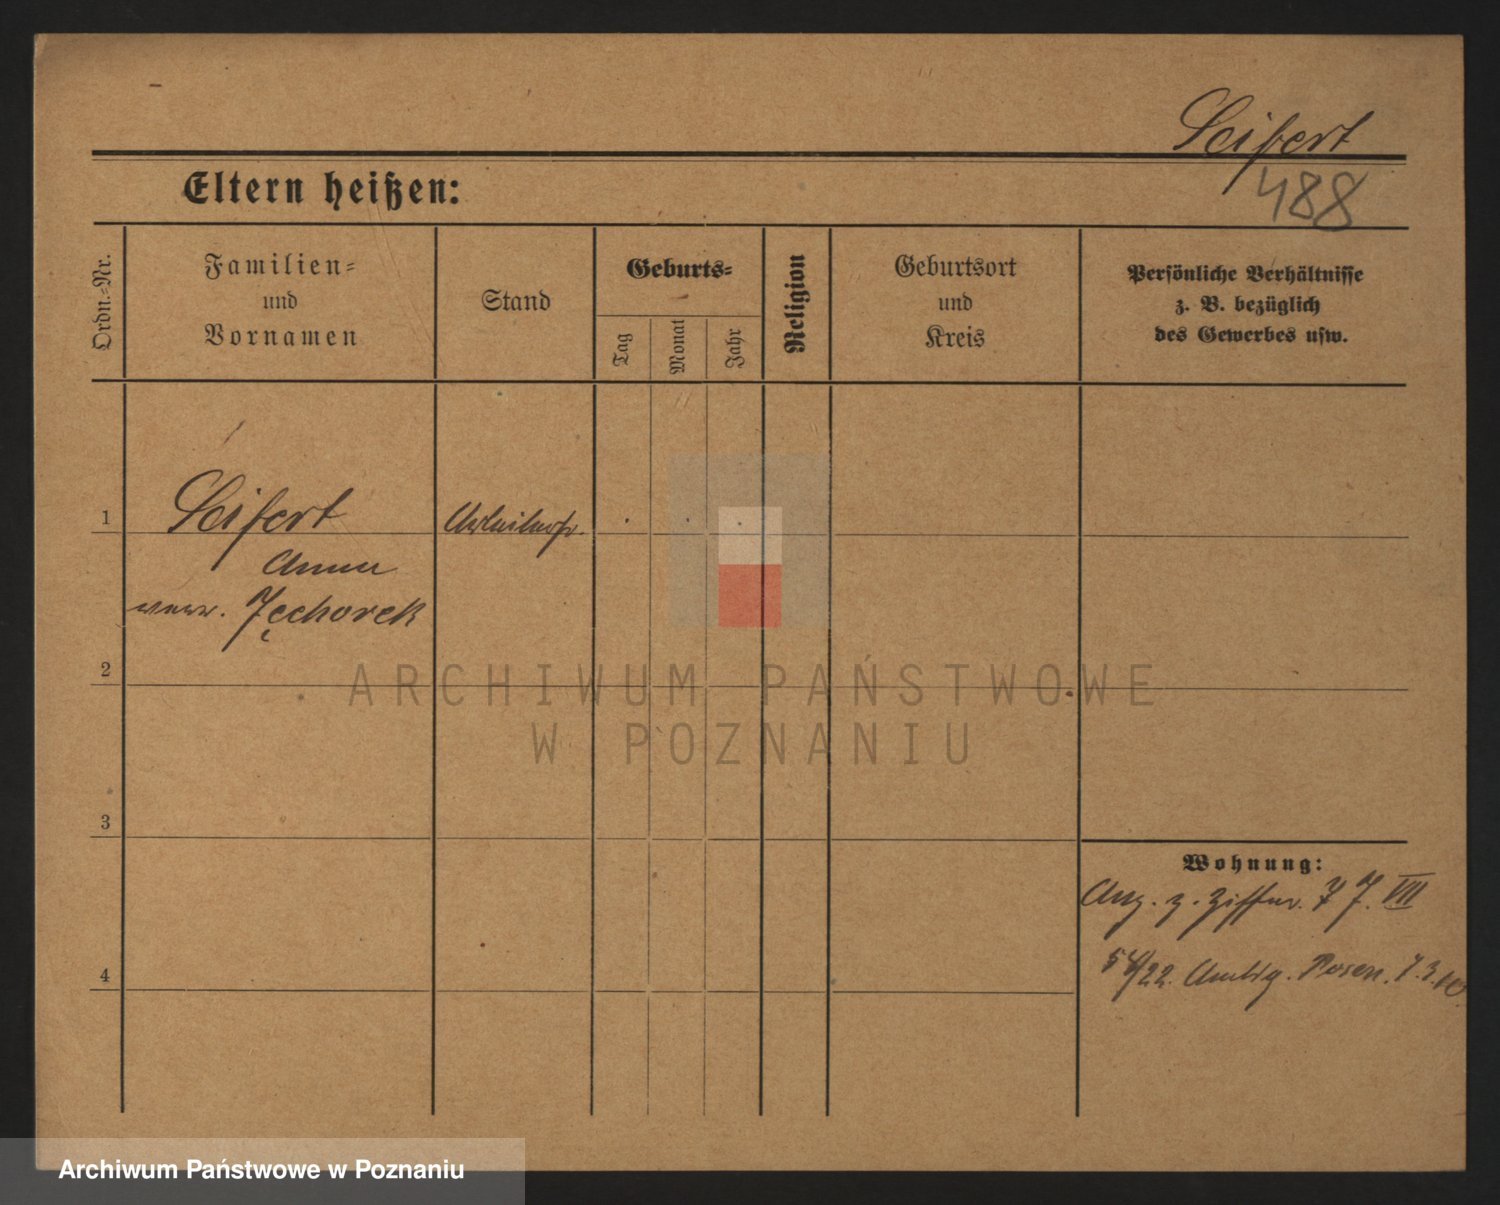 Seifert
488
Eltern heißen:
Ordn.-Nr.
Familien-
und
Vornamen
Stand
Geburts-
Tag
Monat
Jahr
Religion
Geburtsort
und
Kreis
Persönliche Verhältnisse
z. B. bezüglich
des Gewerbes usw.
1
Seifert
Anna
verw. Jęchorek
2
ARCHIWUM PAŃSTWOWE
W POZNANIU
3
Wohnung:
Anz. z. Ziffer. 7 J. VII
4
54/22. Amtsg. Posen. 7.3.
Archiwum Państwowe w Poznaniu